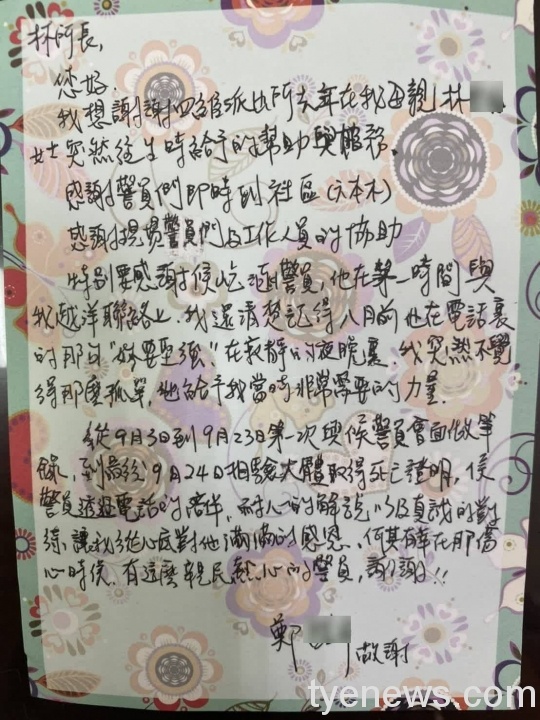 林所長,
您好.
我想謝謝四維派出所去年在我母親林
女士突然往生時給予的幫助與服務.
感謝警員們即時到社區(六本木)
感謝現場警員們及工作人員的協助
特別要感謝侯 警員, 他在第一時間與
我越洋聯絡上. 我還清楚記得八月前他在電話裏
的那句"妳要堅強". 在寂靜的夜晚裏, 我突然不覺
得那麼孤單, 他給予我當時非常需要的力量.
從9月3日到9月23日第一次與侯警員會面做筆
錄, 到最終9月24日相驗大體取得死亡證明, 侯
警員透過電話的 , 耐心的解說以及真誠的對
待, 讓我從心底對他滿滿的感恩. 何其有幸在那傷
心時候, 有這麼親民熱心的警員, 謝謝!!
鄭 敬謝
tyenews.com